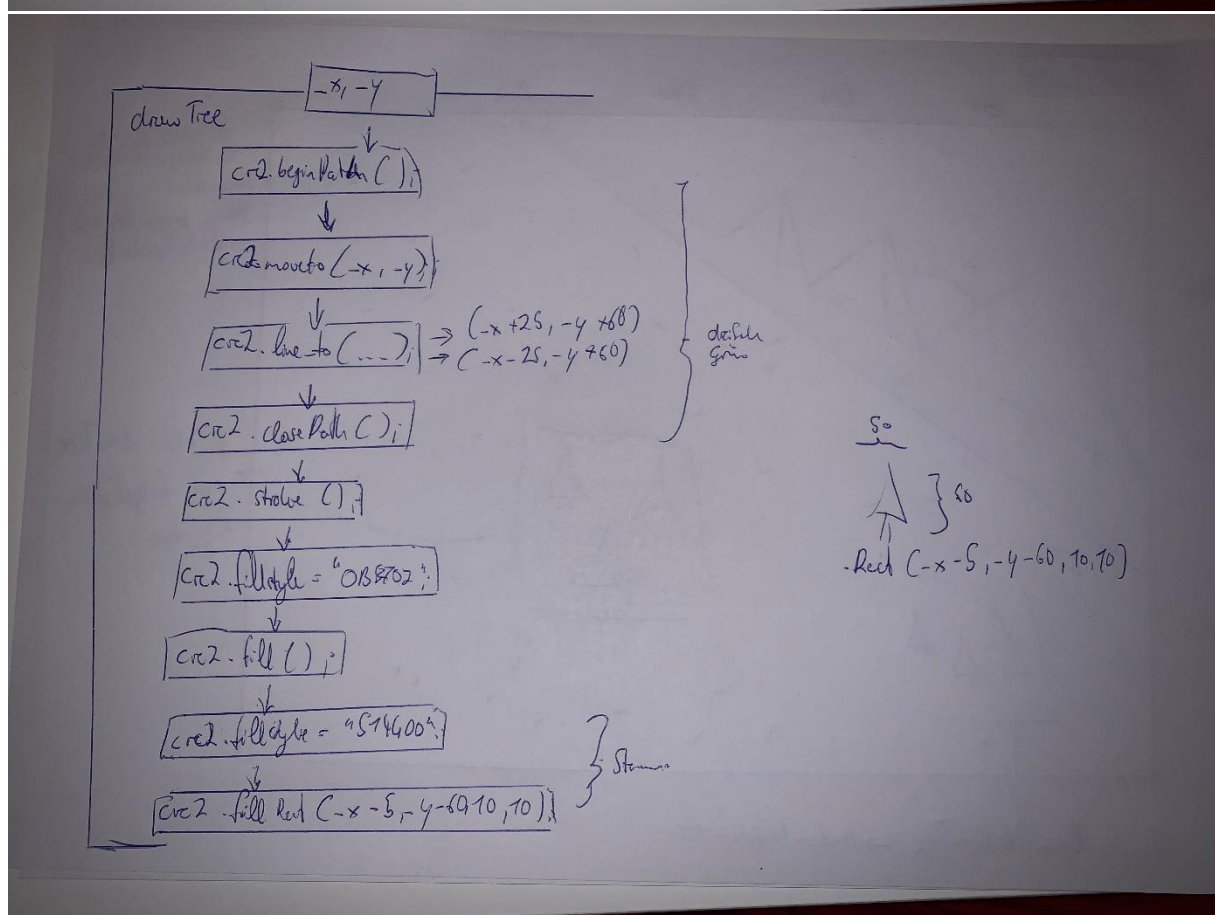 _x, _y
drawTree
crc2.beginPath();
crc2.moveto(_x, _y);
crc2.line_to(...); → (_x+25, _y+60)
→ (_x-25, _y+60)
crc2.closePath();
crc2.stroke();
crc2.fillstyle = "0B8702";
crc2.fill();
crc2.fillstyle = "514400";
crc2.fillRect(_x-5, _y-60,10,10);
grün
Stamm
50
60
.Rect(_x-5, _y-60, 10,10)